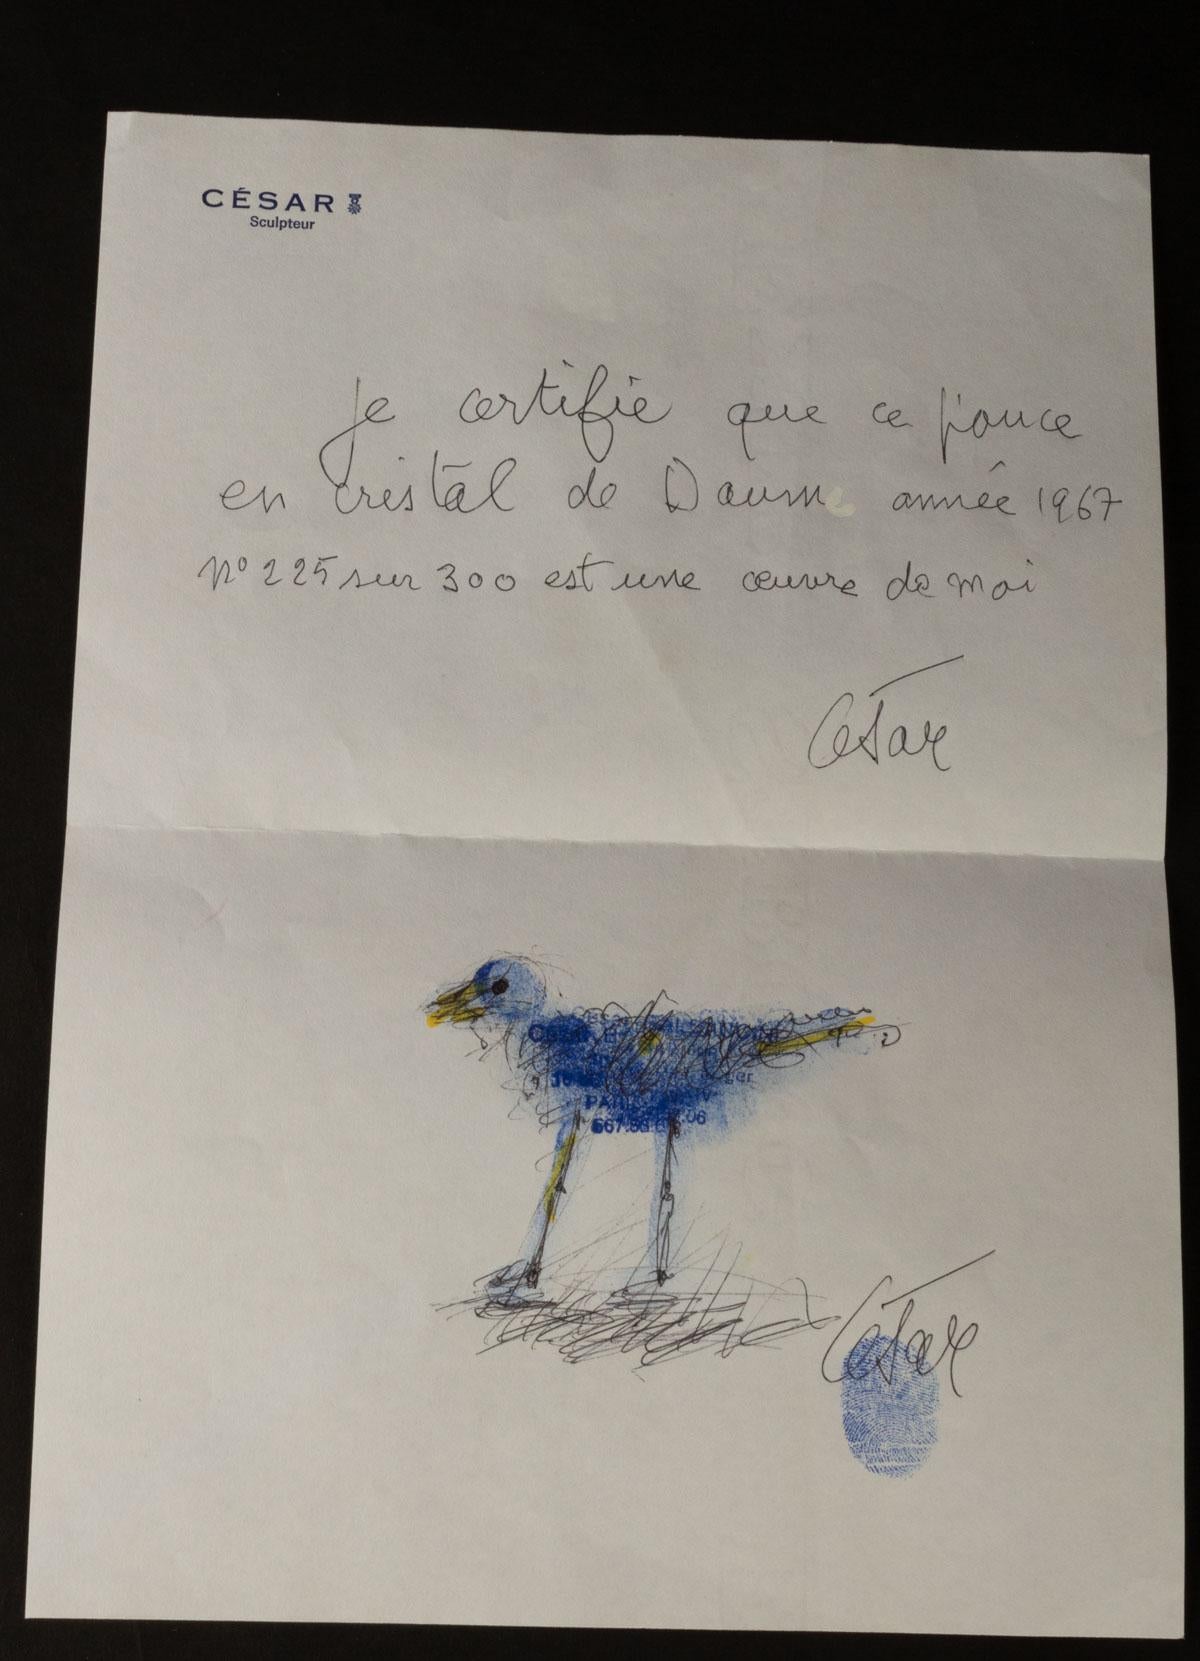 CÉSAR
Sculpteur
Je certifie que ce pouce
en cristal de Daum année 1967
N° 225 sur 300 est une œuvre de moi
César
César